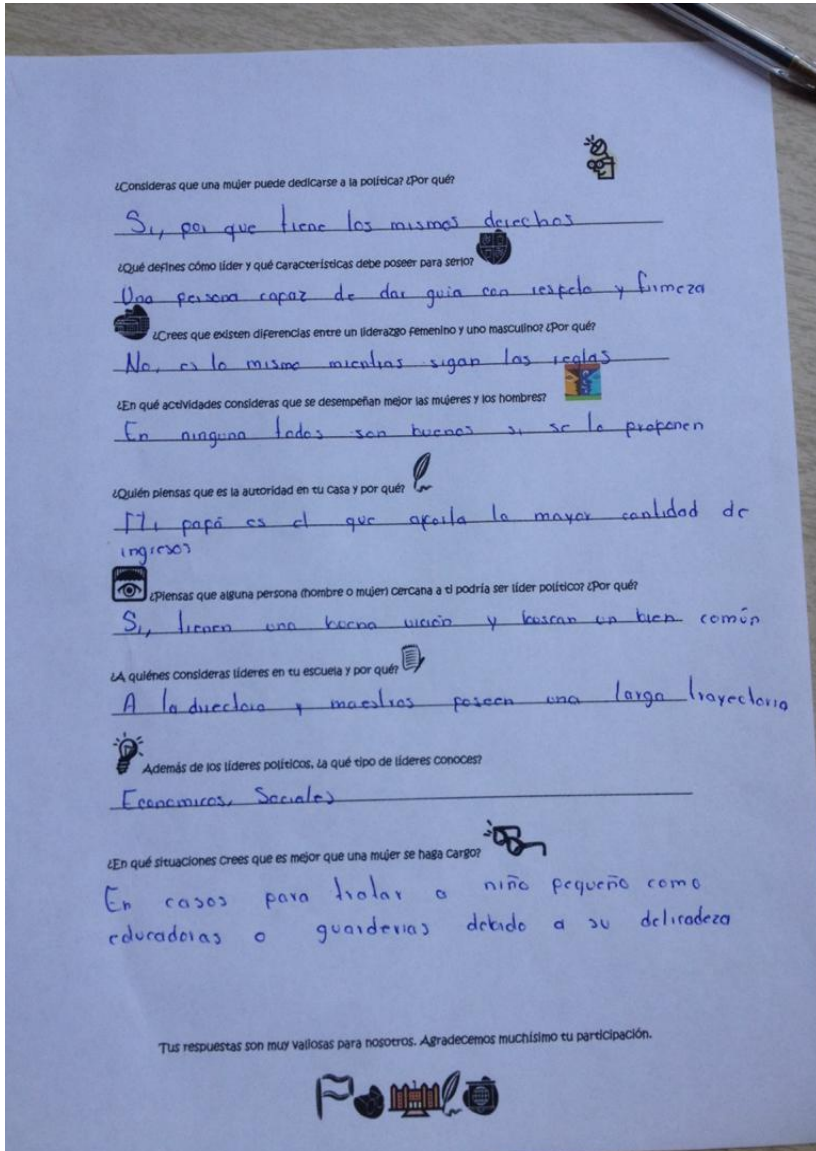 ¿Consideras que una mujer puede dedicarse a la política? ¿Por qué?
Si, por que tiene los mismos derechos
¿Qué defines cómo líder y qué características debe poseer para serlo?
Una persona capaz de dar guia con respeto y firmeza
¿Crees que existen diferencias entre un liderazgo femenino y uno masculino? ¿Por qué?
No, es lo mismo mientras sigan las reglas
¿En qué actividades consideras que se desempeñan mejor las mujeres y los hombres?
En ninguna todos son buenos si se lo proponen
¿Quién piensas que es la autoridad en tu casa y por qué?
Mi papá es el que aporta la mayor cantidad de
ingresos
¿Piensas que alguna persona (hombre o mujer) cercana a ti podría ser líder político? ¿Por qué?
Si, tienen una buena visión y buscan un bien común
¿A quiénes consideras líderes en tu escuela y por qué?
A la directora y maestros poseen una larga trayectoria
Además de los líderes políticos, ¿a qué tipo de líderes conoces?
Economicos, Sociales
¿En qué situaciones crees que es mejor que una mujer se haga cargo?
En casos para tratar a niño pequeño como
educadoras o guarderias debido a su delicadeza
Tus respuestas son muy valiosas para nosotros. Agradecemos muchísimo tu participación.